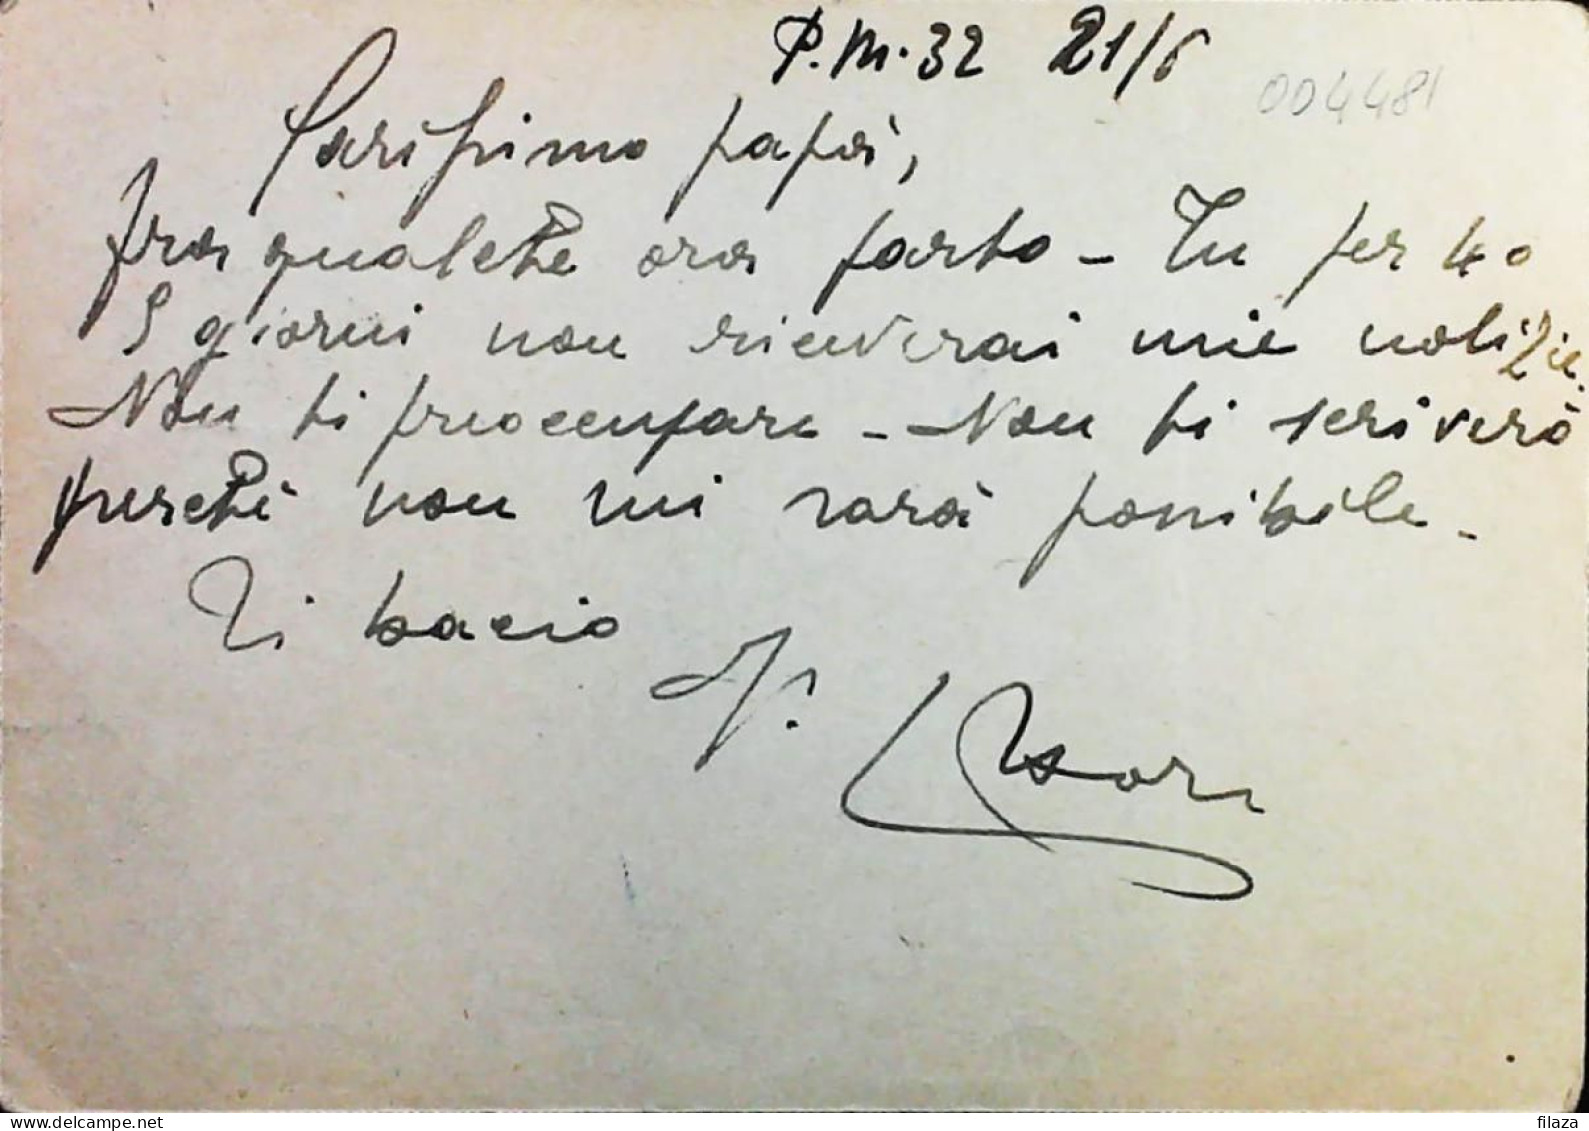 P.M. 32 21/6
004481
Carissimo papà,
fra qualche ora parto - Tu per 4 o
5 giorni non riceverai mie notizie.
Non ti preoccupare - Non ti scriverò
perchè non mi sarà possibile -
Ti bacio
delcampe.net
filaza